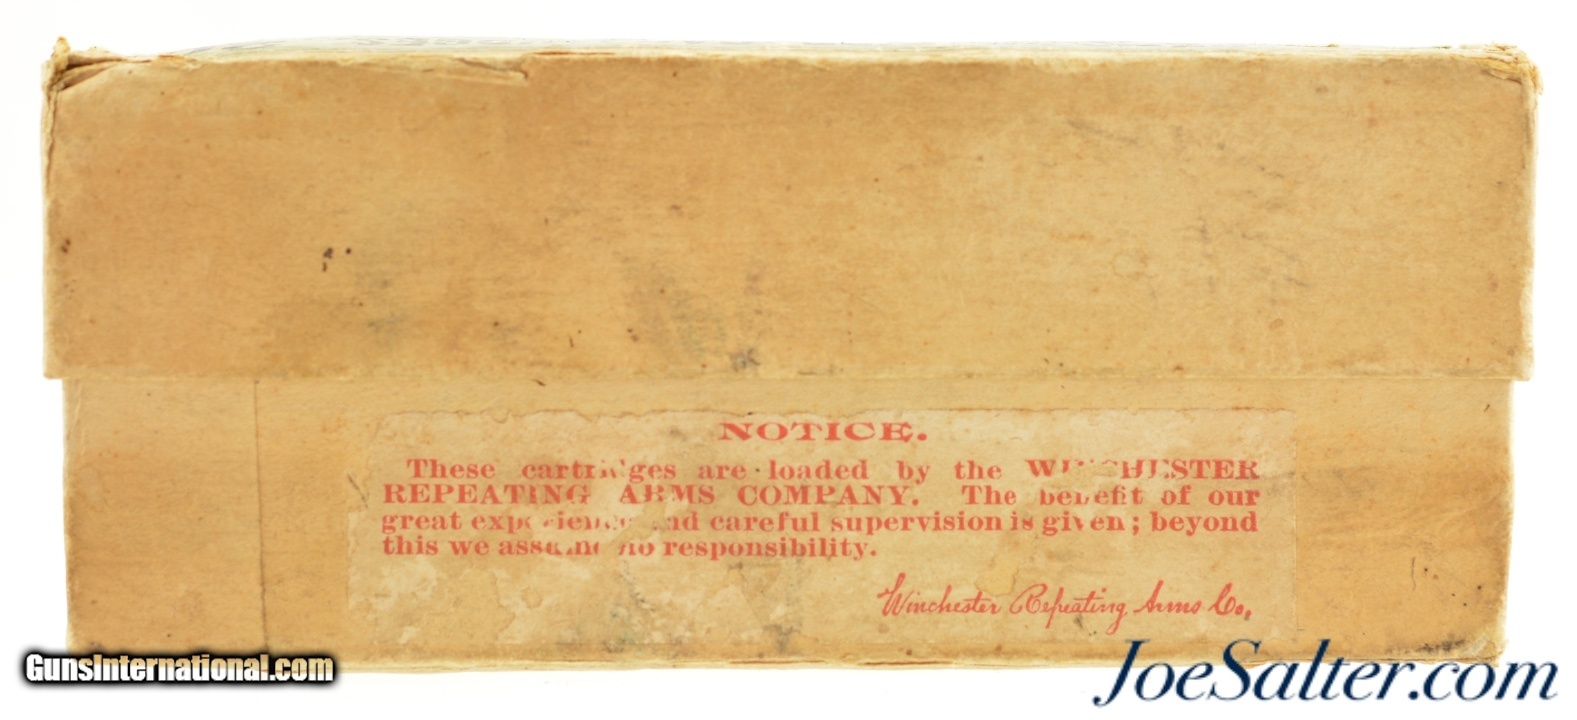 NOTICE.
These cartridges are loaded by the WINCHESTER
REPEATING ARMS COMPANY. The benefit of our
great experience and careful supervision is given; beyond
this we assume no responsibility.
Winchester Repeating Arms Co.
GunsInternational.com
JoeSalter.com